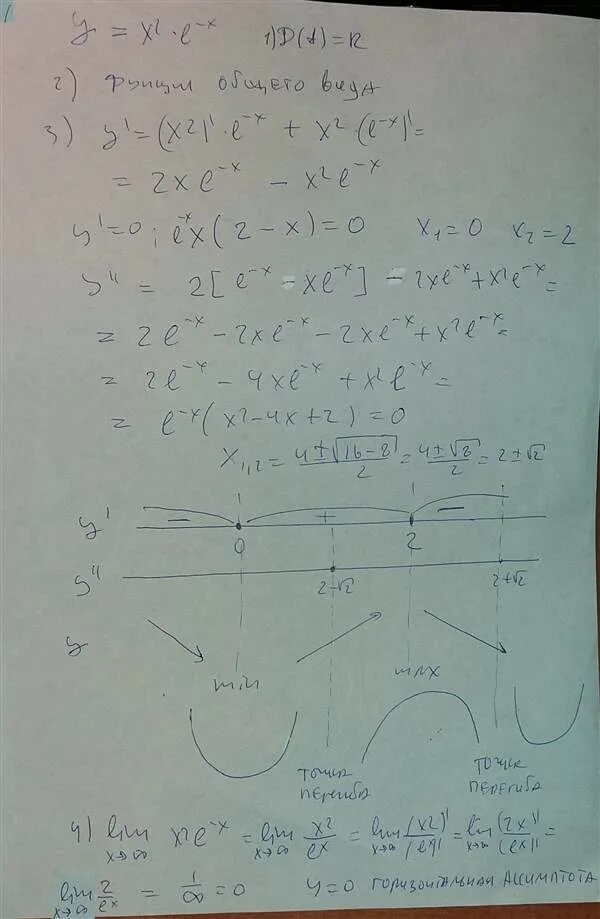 y = x² · e^-x 1) D(f) = R
2) функция общего вида
3) y' = (x²)' · e^-x + x² · (e^-x)' =
= 2xe^-x - x²e^-x
y' = 0; e^-x x(2 - x) = 0 x₁ = 0 x₂ = 2
y'' = 2[e^-x - xe^-x] - 2xe^-x + x²e^-x =
= 2e^-x - 2xe^-x - 2xe^-x + x²e^-x =
= 2e^-x - 4xe^-x + x²e^-x =
= e^-x(x² - 4x + 2) = 0
x₁,₂ = (4 ± √(16 - 8))/2 = (4 ± √8)/2 = 2 ± √2
y' - + -
0 2
y'' 2-√2 2+√2
y
min max
точка перегиба точка перегиба
4) lim x→∞ x²e^-x = lim x→∞ x²/e^x = lim x→∞ (x²)'/(e^x)' = lim x→∞ (2x)'/(e^x)' =
lim x→∞ 2/e^x = 1/∞ = 0 y = 0 горизонтальная ассимптота